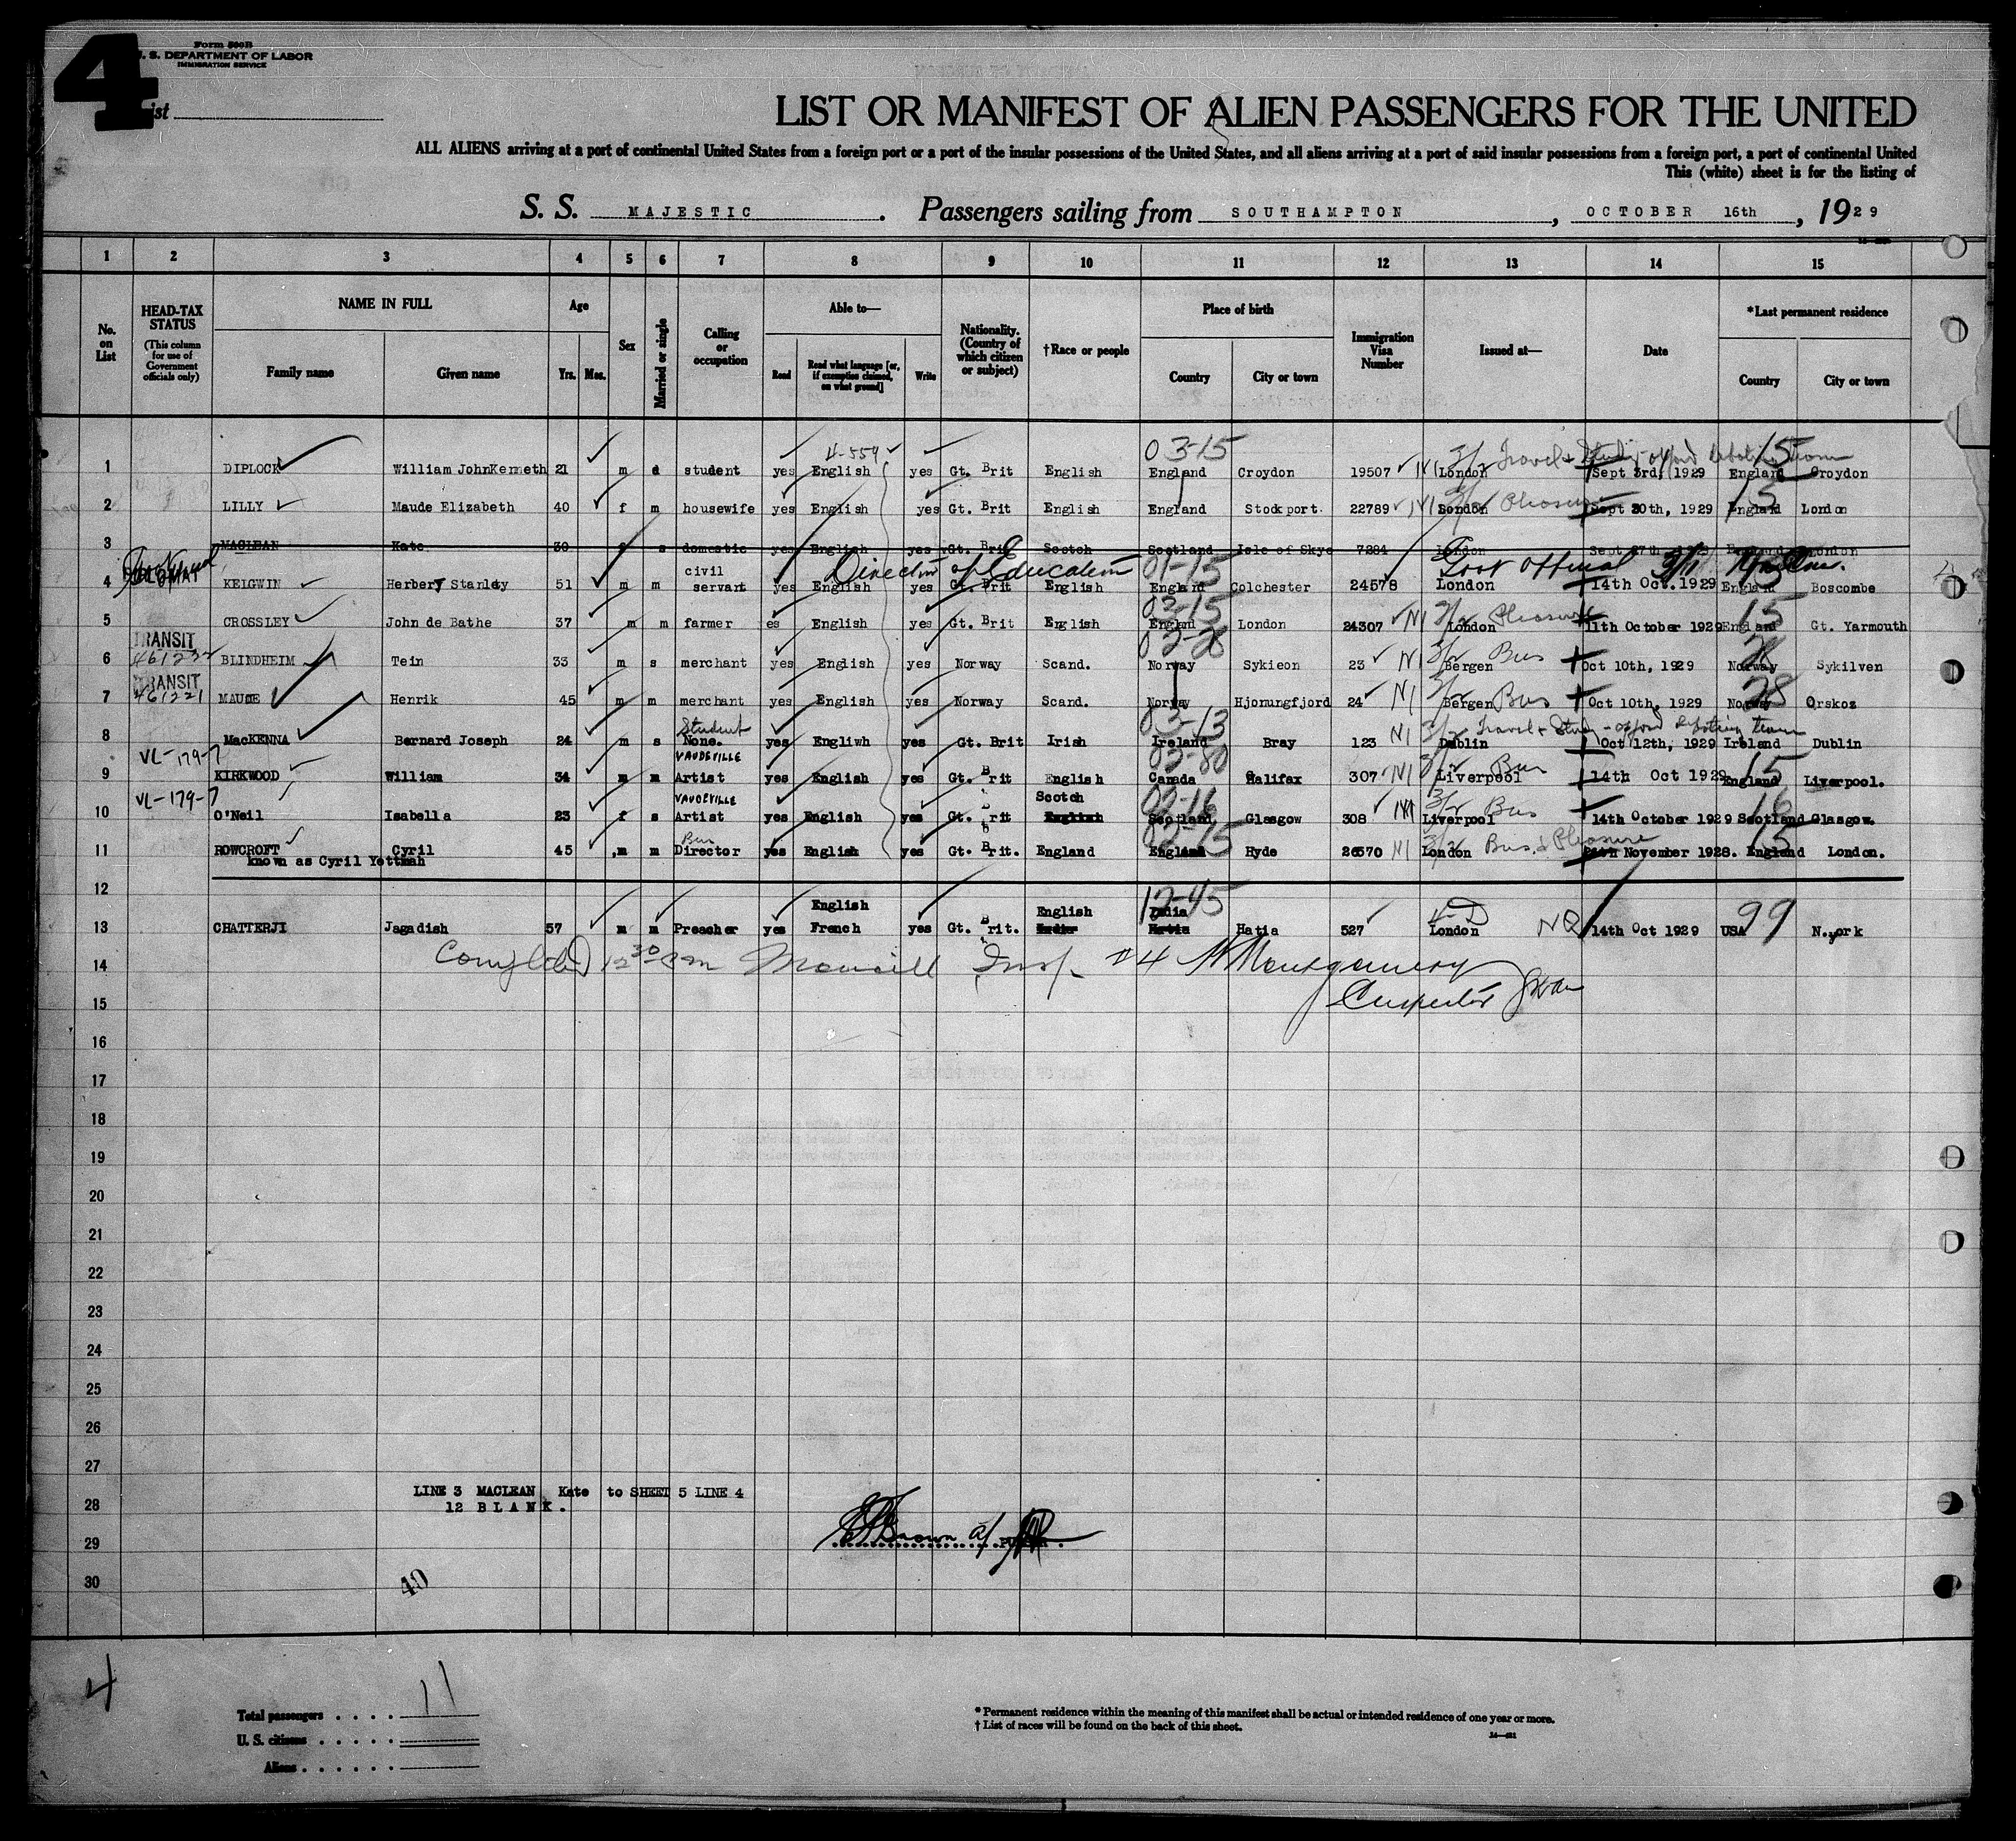 4
Form 500B
U. S. DEPARTMENT OF LABOR
IMMIGRATION SERVICE
List
LIST OR MANIFEST OF ALIEN PASSENGERS FOR THE UNITED
ALL ALIENS arriving at a port of continental United States from a foreign port or a port of the insular possessions of the United States, and all aliens arriving at a port of said insular possessions from a foreign port, a port of continental United
This (white) sheet is for the listing of
S. S. MAJESTIC. Passengers sailing from SOUTHAMPTON, OCTOBER 16th, 1929
1 2 3 4 5 6 7 8 9 10 11 12 13 14 15
No. on List
HEAD-TAX STATUS (This column for use of Government officials only)
NAME IN FULL
Family name Given name
Age
Yrs. Mos.
Sex
Married or single
Calling or occupation
Able to—
Read Read what language [or, if exemption claimed, on what ground] Write
Nationality. (Country of which citizen or subject)
†Race or people
Place of birth
Country City or town
Immigration Visa Number
Issued at—
Date
*Last permanent residence
Country City or town
4-559 03-15 3/2 Travel & Study Oxford Debating Team 15
1 DIPLOCK William JohnKenneth 21 m s student yes English yes Gt. Brit English England Croydon 19507 London Sept 3rd, 1929 England Croydon
Pleasure 15
2 LILLY Maude Elizabeth 40 f m housewife yes English yes Gt. Brit English England Stockport. 22789 NI London Sept 30th, 1929 England London
3 MACLEAN Kate 30 f s domestic yes English yes Gt. Brit Scotch Scotland Isle of Skye 7284 London Sept 27th 1929 England London
DIPLOMAT civil Director of Education 01-15 Govt official 3/1
4 KEIGWIN Herbery Stanley 51 m m servant yes English yes Gt. Brit English England Colchester 24578 London 14th Oct. 1929 England Boscombe
03-15 3/2 Pleasure 15
5 CROSSLEY John de Bathe 37 m m farmer es English yes Gt. Brit English England London 24307 NI London 11th October 1929 England Gt. Yarmouth
TRANSIT 461232 02-28 3/2 Bus 28
6 BLINDHEIM Tein 33 m s merchant yes English yes Norway Scand. Norway Sykieon 23 NI Bergen Oct 10th, 1929 Norway Sykilven
TRANSIT 461221 3/2 Bus 28
7 MAUDE Henrik 45 m m merchant yes English yes Norway Scand. Norway Hjorungfjord 24 NI Bergen Oct 10th, 1929 Norway Orskoz
Student 03-13 3/2 Travel & Study - Oxford Debating team
8 MacKENNA Bernard Joseph 24 m s None. yes Engliwh yes Gt. Brit Irish Ireland Bray 123 NI Dublin Oct 12th, 1929 Ireland Dublin
VL-179-7 VAUDEVILLE 02-80 3/2 Bus 15
9 KIRKWOOD William 34 m m Artist yes English yes Gt. Brit English Canada Halifax 307 NI Liverpool 14th Oct 1929 England Liverpool.
VL-179-7 VAUDEVILLE Scotch 02-16 3/2 Bus 16
10 O'Neil Isabella 23 f s Artist yes English yes Gt. Brit English Scotland, Glasgow 308 NI Liverpool 14th October 1929 Scotland Glasgow.
Bus 02-15 3/2 Bus. & Pleasure 15
11 ROWCROFT Cyril 45 m m Director yes English yes Gt. Brit. England England Hyde 26570 NI London November 1928. England London.
known as Cyril Yettmah
12
English English 12-45 India 4-D 99
13 CHATTERJI Jagadish 57 m m Preacher yes French yes Gt. Brit. Hatia 527 London NQ 14th Oct 1929 USA N.york
14 Completed 12 30 Insp. #4 Montgomery
15 Inspector
16
17
18
19
20
21
22
23
24
25
26
27
LINE 3 MACLEAN Kate to SHEET 5 LINE 4
28 12 BLANK.
29 Brown
30
40
4
Total passengers . . . . 11
U. S. citizens . . . . .
Aliens . . . . . .
* Permanent residence within the meaning of this manifest shall be actual or intended residence of one year or more.
† List of races will be found on the back of this sheet.